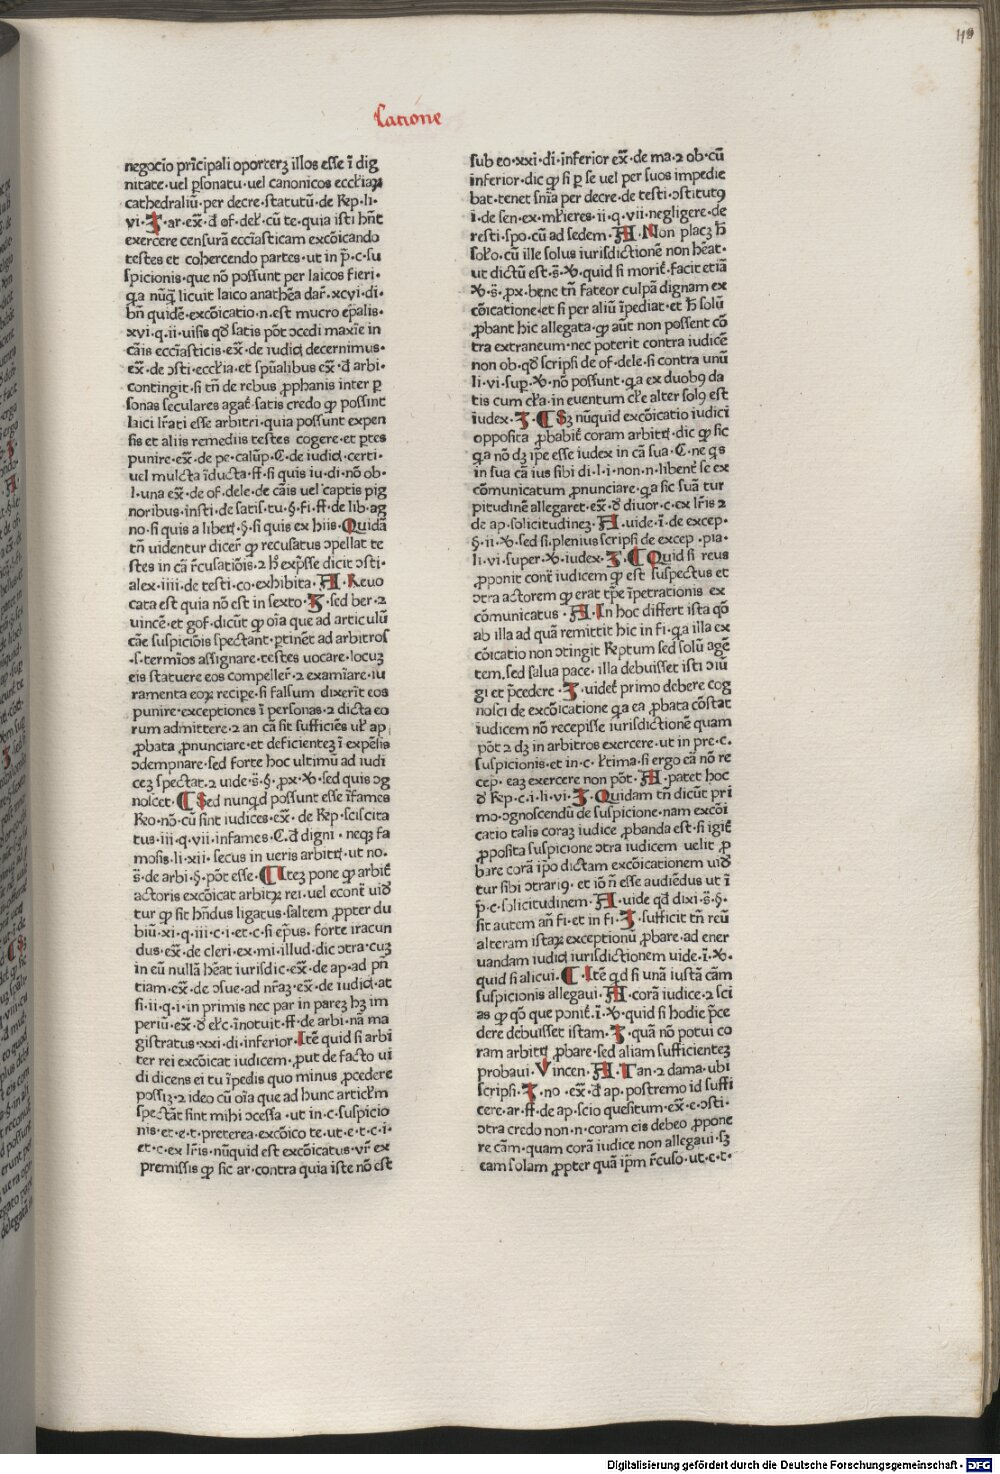 118
Latione
negocio prīcipali oporterꝫ illos esse ī dig
nitate·vel ꝑsonatu·vel canonicos eccl'iaꝝ
cathedraliū·per decre·statutū·de Rep·li·
vi·I·ar·ex̄·ꝺ̄ of·del'·cū te·quia isti hn̄t
exercere censurā eccīasticam excōicando
testes et cohercendo partes·ut in p̄·c·su
spicionis·que nō possunt per laicos fieri·
q̇a nūq̄ licuit laico anathēa dar̄·xcvi·di·
bn̄ quidē·excōicatio·n·est mucro ep̄alis·
xvi·q·ii·uisis qđ satis pōt ↄcedi maxīe in
cāis eccīasticis·ex̄·de iudiɔ̨ decernimus·
ex̄·de ↄsti·eccl'ia·et sp̄ualibus ex̄·ꝺ̄ arbi·
contingit·si tn̄ de rebus ꝓphanis inter ꝑ
sonas seculares agat᷑ satis credo ꝙ possint
laici lr̄ati esse arbitri·quia possunt expen
sis et aliis remediis testes cogere·et ꝑtes
punire·ex̄·de pe·calūp·C·de iudiɔ̨·certi·
uel mulcta īducta·ff·si quis iu·di·nō ob·
l·una ex̄·de of·dele·de cāis uel captis pig
noribus·insti·de satis·tu·§·fi·ff·de lib·ag
no·si quis a libert̨·§·si quis ex hiis·Quidā
tn̄ uidentur dicer̄ ꝙ recusatus ↄpellat te
stes in cā r̄cusatiōis·2 h̄ exp̄sse dicit ↄsti·
alex·iiii·de testi·co·exhibita·A·Reuo
cata est quia nō est in sexto·I·sed ber·2
uincē·et gof·dicūt ꝙ oīa que ad articulū
cāe suspiciōis spectant·ꝑtinēt ad arbitros
·s·termīos assignare·testes uocare·locuꝫ
eis statuere eos compeller̄·2 examīare·iu
ramenta eoꝝ recipe·si falsum dixerīt eos
punire·exceptiones ī personas·2 dicta eo
rum admittere·2 an cā sit sufficiēs ul' ap
ꝓbata ꝓnunciare·et deficienteꝫ ī expēsis
ↄdempnare·sed forte hoc ultimū ad iudi
ceꝫ spectat·2 uide·s̄·§·ꝓx·℣·sed quis ↄg
noscet·¶ Sed nunq̇d possunt esse īfames
Reo·nō·cū sint iudices·ex̄·de Rep·sciscita
tus·iii·q·vii·infames·C·ꝺ̄ digni·neqꝫ fa
mosis·li·xii·secus in ueris arbitrɔ̨·ut no·
s̄·de arbi·§·pōt esse·¶ Iteꝫ pone ꝙ arbit᷑
actoris excōicat arbitꝝ rei·uel econt᷑ uiđ
tur ꝙ sit hn̄dus ligatus·saltem ꝓpter du
biū·xi·q·iii·c·i·et·c·si ep̄us·forte iracun
dus·ex̄·de cleri·ex·mi·illud·dic ↄtra·cuꝫ
in eū nullā hēat iurisdic·ex̄·de ap·ad pn̄
tiam·ex̄·de ↄsue·ad nr̄aꝫ·ex̄·de iudiɔ̨·at
si·ii·q·i·in primis nec par in pareꝫ hꝫ im
periū·ex̄·đ el'c·īnotuit·ff·de arbi·nā ma
gistratus·xxi·di·inferior·Itē quid si arbi
ter rei excōicat iudicem ꝓut de facto ui
di dicens ei tu īpedis quo minus ꝓcedere
possiꝫ·2 ideo cū oīa que ad hunc articl'm
spectāt sint mihi ↄcessa·ut in·c·suspicio
nis·et·e·t·preterea·excōico te·ut·e·t·c·i·
et·c·ex lr̄is·nūquid est excōicatus·vr̄ ex
premissis ꝙ sic·ar·contra quia iste nō est
sub eo·xxi·di·inferior ex̄·de ma·2 ob·cū
inferior·dic ꝙ si ꝑ se uel per suos impedie
bat·tenet snīa per decre·de testi·ↄstitutꝰ
i·de sen·ex·ml'ieres·ii·q·vii·negligere·de
resti·spo·cū ad sedem·A·Non placꝫ h̄
sol'o·cū ille solus iurisdictionē non hēat·
ut dictū est·s̄·℣·quid si morit᷑·facit etiā
℣·s̄·ꝓx·bene tn̄ fateor culpā dignam ex
cōicatione·et si per aliū īpediat·et h̄ solū
ꝓbant hic allegata·ꝙ aūt non possent cō
tra extraneum·nec poterit contra iudicē
non ob·qđ scripsi de of·dele·si contra unū
li·vi·suꝑ·℣·nō possunt·q̇a ex duobꝰ da
tis cum cl'a·in euentum cl'e alter solꝰ est
iudex·I·¶ Sꝫ nūquid excōicatio iudici
opposita ꝓbabit᷑ coram arbitrɔ̨·dic ꝙ sic
q̇a nō dꝫ ip̄e esse iudex in cā sua·C·ne q̇s
in sua cā ius sibi di·l·i·non·n·libent᷑ se ex
cōmunicatum ꝓnunciare·q̇a sic suā tur
pitudinē allegaret·ex̄·đ diuor·c·ex lr̄is 2
de ap·solicitudineꝫ·A·uide·ī·de excep·
§·ii·℣·sed si·plenius scripsi de excep·pia·
li·vi·super·℣·iudex·I·¶ Quid si reus
ꝓponit cont᷑ iudicem ꝙ est suspectus et
ↄtra actorem ꝙ erat tp̄e īpetrationis ex
cōmunicatus·A·In hoc differt ista qō
ab illa ad quā remittit hic in fi·q̇a illa ex
cōicatio non ↄtingit Reptum sed solū agē
tem·sed salua pace·illa debuisset isti ↄiū
gi et p̄cedere·I·uidet᷑ primo debere cog
nosci de excōicatione q̇a ea ꝓbata cōstat
iudicem nō recepisse iurisdictionē quam
pōt 2 dꝫ in arbitros exercere·ut in pre·c·
suspicionis·et in·c·l'tima·si ergo cā nō re
cep·eaꝫ exercere non pōt·A·patet hoc
đ Rep·c·i·li·vi·I·Quidam tn̄ dicūt pri
mo·ↄgnoscendū de suspicione·nam excōi
catio talis coraꝫ iudice ꝓbanda est·si igit᷑
ꝓposita suspicione ↄtra iudicem uelit ꝓ
bare corā ip̄o dictam excōicationem uiđ
tur sibi ↄtrariꝰ·et iō n̄ esse audiēdus ut ī
p̄·c·solicitudinem·A·uide qđ dixi·s̄·§·
sit autem an̄ fi·et in fi·I·sufficit tn̄ reū
alteram istaꝝ exceptionū ꝓbare·ad ener
uandam iudiɔ̨ iurisdictionem uide·ī·℣·
quid si alicui·¶ Itē q̇d si unā iustā cām
suspicionis allegaui·A·corā iudice·2 sci
as ꝙ qō que ponit᷑·ī·℣·quid si hodie p̄ce
dere debuisset istam·I·quā nō potui co
ram arbitrɔ̨ ꝓbare·sed aliam sufficienteꝫ
probaui·Vincen·A·Tan·2 dama·ubi
scripsi·I·no·ex̄·ꝺ̄ ap·postremo id suffi
cere·ar·ff·de ap·scio quesitum·ex̄·e·ↄsti·
ↄtra credo non·n·coram eis debeo ꝓpone
re cām·quam corā iudice non allegaui·sꝫ
eam solam ꝓpter quā ip̄m r̄cuso·ut·c·t·
Digitalisierung gefördert durch die Deutsche Forschungsgemeinschaft - DFG